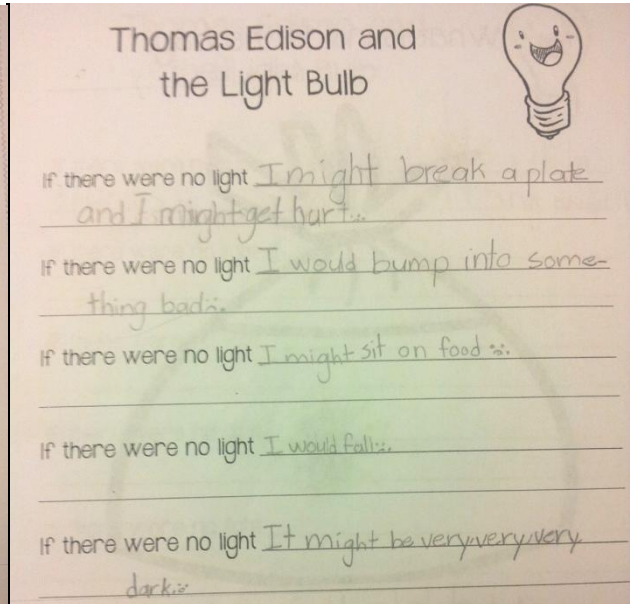 Thomas Edison and
the Light Bulb
If there were no light I might break a plate
and I might get hurt...
If there were no light I would bump into some-
thing bad
If there were no light I might sit on food
If there were no light I would fall
If there were no light It might be very,very,very
dark